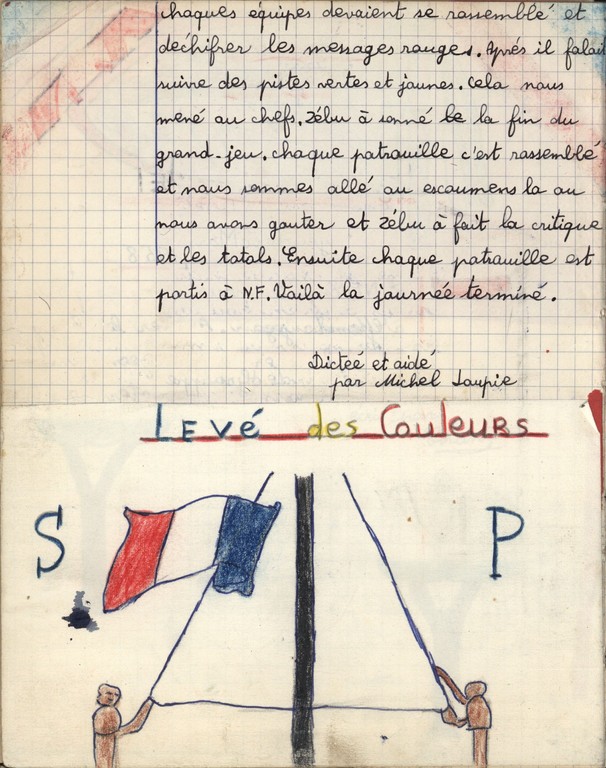 chaques équipes devaient se rassemblé et
dechifrer les messages rouges. Après il falait
suivre des pistes vertes et jaunes. Cela nous
mené au chefs. Zébu à sonné le la fin du
grand-jeu. chaque patrouille c'est rassemblé
et nous sommes allé au escoumens la ou
nous avons gouter et Zébu à fait la critique
et les totals. Ensuite chaque patrouille est
partis à N.F. Voilà la journée terminé.
Dicteé et aidé
par Michel Loupie
Levé des Couleurs
S P